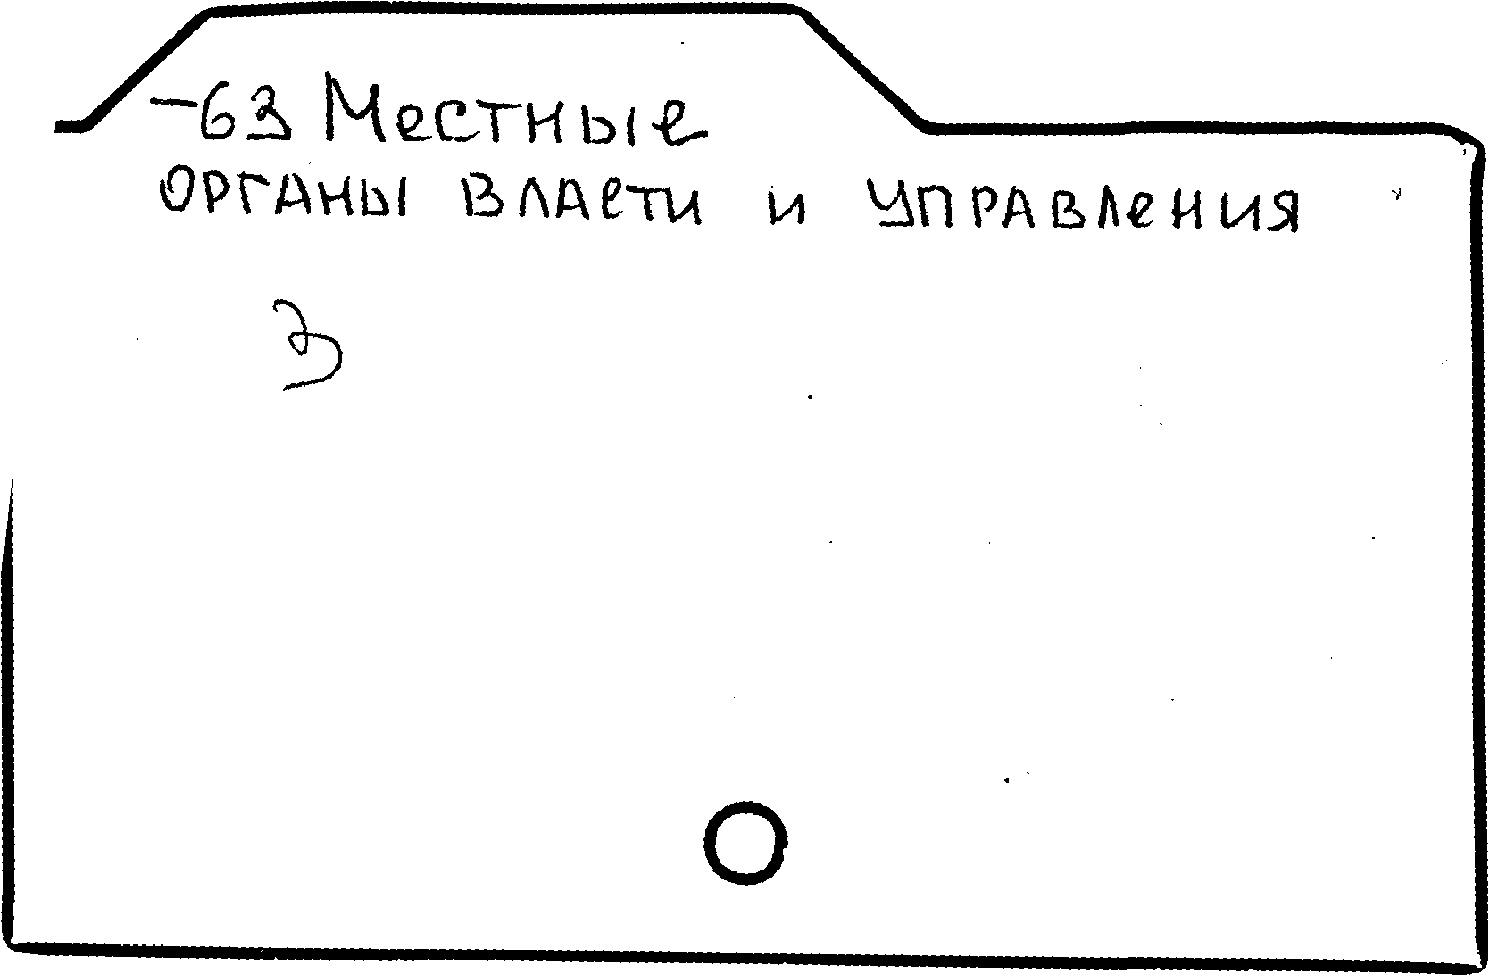 -63 Местные
органы власти и управления
3